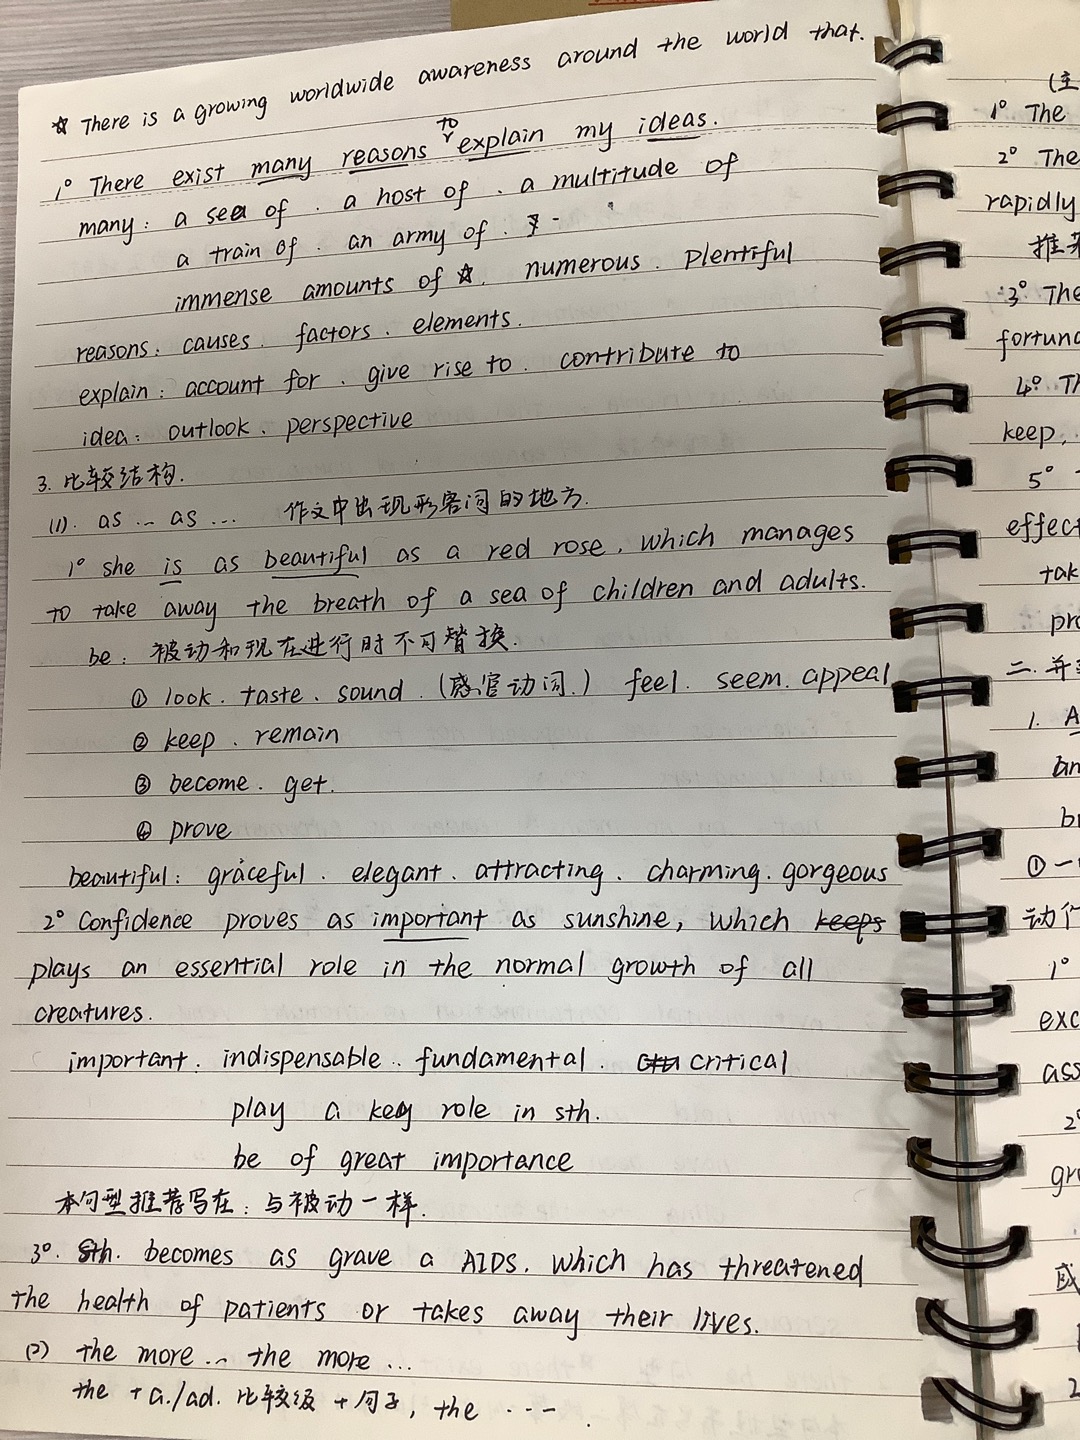 ☆ There is a growing worldwide awareness around the world that.
1° There exist many reasons to explain my ideas.
many: a sea of . a host of . a multitude of
a train of . an army of .
immense amounts of ☆. numerous. plentiful
reasons: causes. factors. elements.
explain: account for. give rise to. contribute to
idea: outlook. perspective
3. 比较结构.
(1). as ... as ... 作文中出现形容词的地方.
1° she is as beautiful as a red rose, which manages
to take away the breath of a sea of children and adults.
be: 被动和现在进行时不可替换.
① look. taste. sound. (感官动词.) feel. seem. appeal
② keep. remain
③ become. get.
④ prove
beautiful: graceful. elegant. attracting. charming. gorgeous
2° Confidence proves as important as sunshine, which keeps
plays an essential role in the normal growth of all
creatures.
important. indispensable. fundamental. critical
play a key role in sth.
be of great importance
本句型推荐写在: 与被动一样.
3°. Sth. becomes as grave a AIDS, which has threatened
the health of patients or takes away their lives.
(2) the more ... the more ...
the + a./ad. 比较级 + 句子, the ... .
(主
1° The
2° The
rapidly
推荐
3° The
fortun
4°
keep,
5°
effect
tak
pro
二. 并
1. A
an
b
① 一
动作
1°
exc
ass
2°
gr
或
2